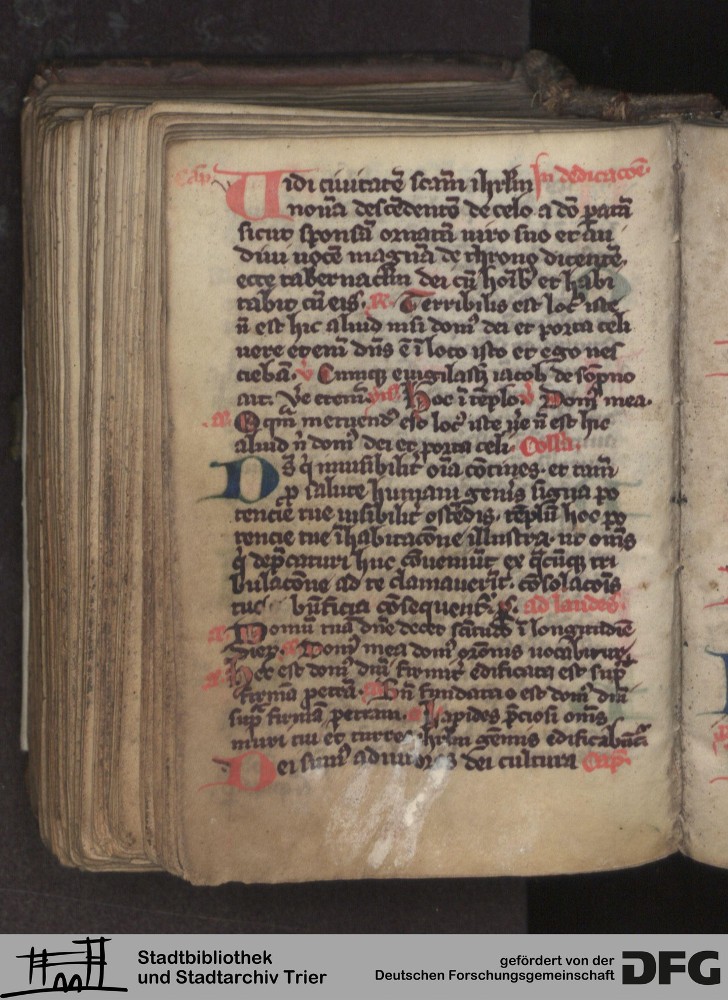 Cap. Vidi civitatē sc̄am ih̄rlm In dedicac̄oe
novā descēdentē de celo a dō patā
sicut sponsū ornatā viro suo et au
divi vocē magnā de throno dicentē
ecce tabernaclm dei cū hoīb et habi
tabit cū eis. R. Terribilis est loc' iste
n̄ est hic aliud nisi dom' dei et porta celi
vere etenī dn̄s ē ī loco isto et ego nes
ciebā. V Cumque evigilasset iacob de sōpno
ait. Ve etenī Hoc ī tēplo. V Dom' mea.
O qm̄ metuend' est loc' iste vē n̄ est hic
aliud n̄ dom' dei et porta celi. Collā.
Ds̄ q̄ invisibilit' oīa cōtines. et tam̄
p salute humani gen̄is signa po
tencie tue visibilit' ostēdis. tēplū hoc po
tencie tue īhabitac̄one illustra. ut om̄s
q̄ dep̄caturi huc cōveniūt ex q̄cūq tri
bulac̄one ad te clamaverīt. cōsolac̄ois
tue bn̄ficia cōsequent'. p. ad laudes.
Domū tuā dn̄e decet sc̄itudo ī longitudīe
dierꝫ. Dom' mea dom' or̄onis vocabitur.
Hec est dom' dn̄i firmit' edificata est sup̄
firmā petrā. Bn̄ fundata est dom' dn̄i
sup̄ firmā petram. Lapides p̄ciosi om̄s
muri tui et turres ih̄rlm gēmis edificabūt'
Dei sum' adiutores dei cultura Cap.
Stadtbibliothek
und Stadtarchiv Trier
gefördert von der
Deutschen Forschungsgemeinschaft DFG